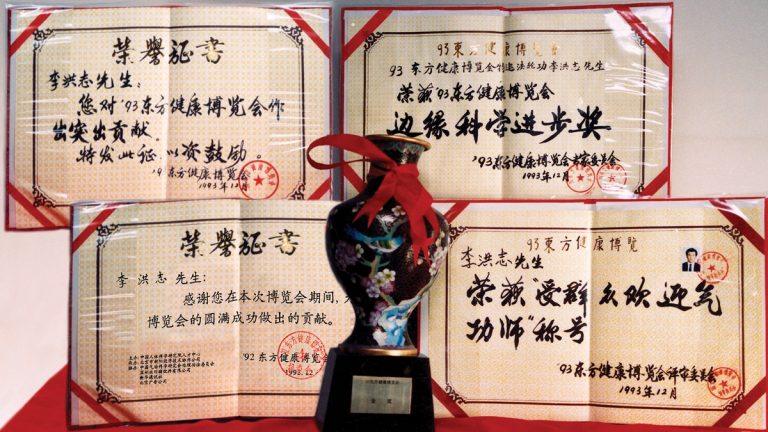 荣誉证书
李洪志先生:
您对'93东方健康博览会作
出突出贡献。
特发此证,以资鼓励。
'93东方健康博览会
1993年12月
93東方健康博览会
93东方健康博览会特邀法轮功李洪志先生
荣获'93东方健康博览会
边缘科学进步奖
'93东方健康博览会专家委员会
1993年12月
荣誉证书
李洪志先生:
感谢您在本次博览会期间,
博览会的圆满成功做出的贡献。
东方健康博览会
93東方健康博览
李洪志先生
荣获“受群众欢迎气
功师”称号
'93东方健康博览会评审委员会
1993年12月